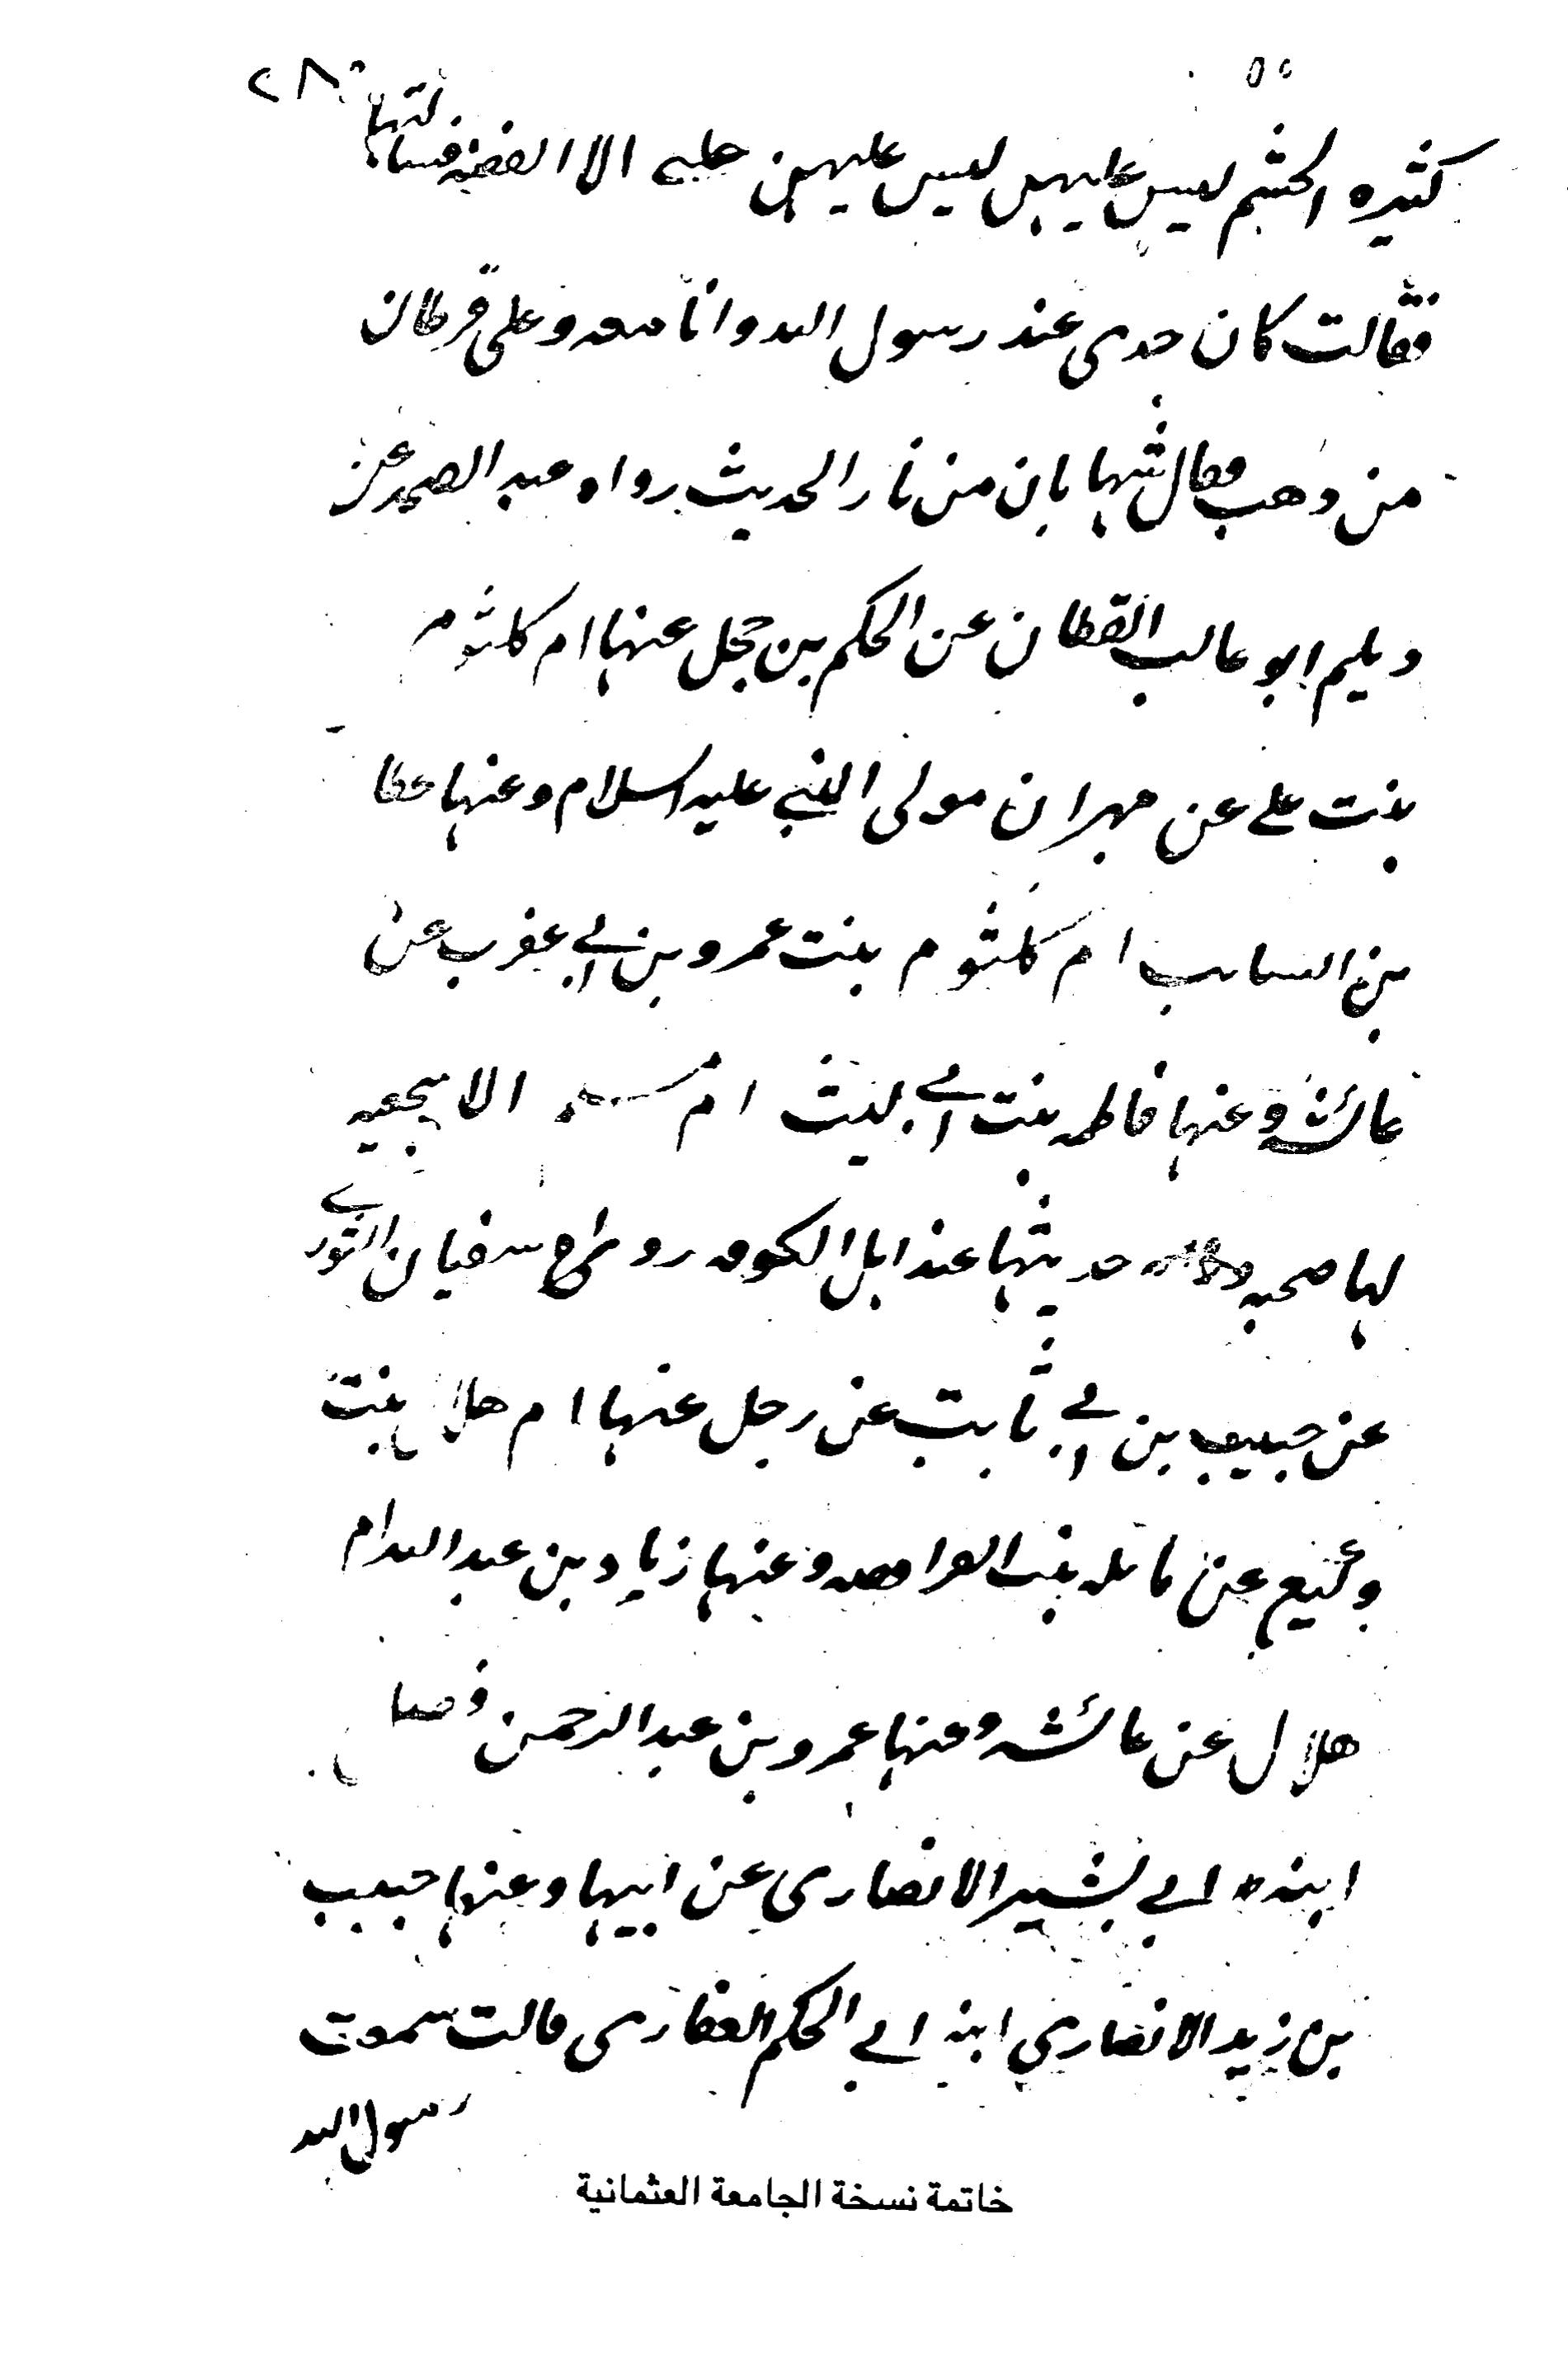 ٢٨٠
كثيره الحشم ليس عليهن ليس عليهن حلى الا الفضه فسالتها
فقالت كان جدى عند رسول الله وانا معه وعلى قرطان
من ذهب فقال شهابان من نار الحديث رواه عبد الصمد عن
ديلم ابو غالب القطان عن الحكم بن جحل عنها ام كلثوم
بنت على عن مهران مولى النبي عليه السلام وعنها عطا
بن السايب ام كلثوم بنت عمرو بن ابي عقرب عن
عائشه وعنها فاطمه بنت ابي ليث ام الاشجعيه
لها صحبه حديثها عند اهل الكوفه سفيان الثورى
عن حبيب بن ابي ثابت عن رجل عنها ام هلال بنت
وكيع عن نائله بنت الفرافصه وعنها زياد بن عبد الله ام
هلال عن عائشه وعنها عمرو بن عبد الرحمن
ابنة ابي بشير الانصارى عن ابيها وعنها حبيب
بن زيد الانصاري ابنة ابي الحكم الغفارى قالت سمعت
رسول الله
خاتمة نسخة الجامعة العثمانية